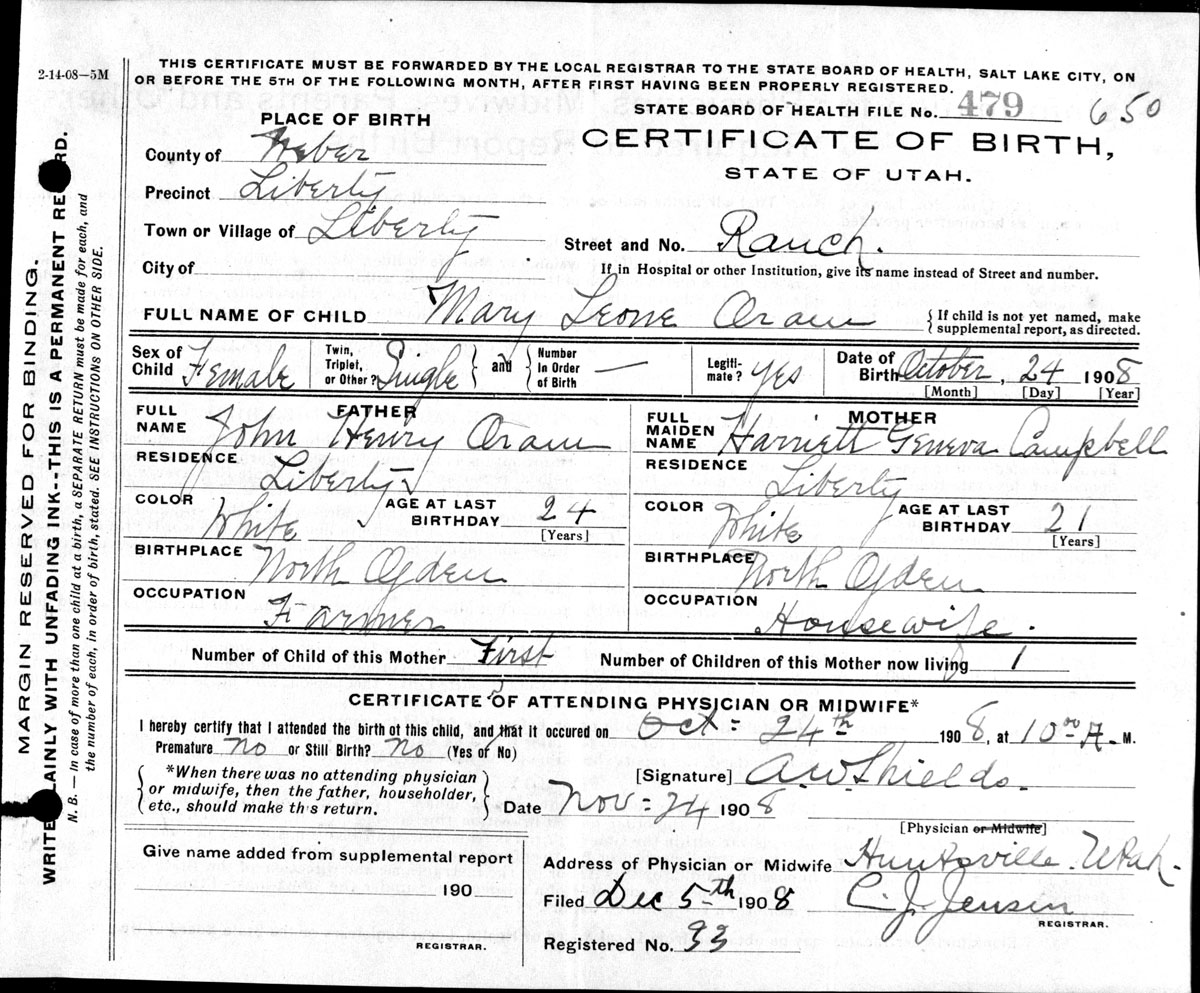 2-14-08—5M
THIS CERTIFICATE MUST BE FORWARDED BY THE LOCAL REGISTRAR TO THE STATE BOARD OF HEALTH, SALT LAKE CITY, ON
OR BEFORE THE 5TH OF THE FOLLOWING MONTH, AFTER FIRST HAVING BEEN PROPERLY REGISTERED.
STATE BOARD OF HEALTH FILE No. 479 650
PLACE OF BIRTH
CERTIFICATE OF BIRTH,
STATE OF UTAH.
County of Weber
Precinct Liberty
Town or Village of Liberty
Street and No. Ranch.
City of
If in Hospital or other Institution, give its name instead of Street and number.
FULL NAME OF CHILD Mary Leone Oram
{ If child is not yet named, make
supplemental report, as directed.
Sex of Child Female
Twin, Triplet, or Other? Single } and { Number In Order of Birth —
Legiti-mate? Yes
Date of Birth October, 24 1908
[Month] [Day] [Year]
FATHER
FULL NAME John Henry Oram
RESIDENCE Liberty
COLOR White
AGE AT LAST BIRTHDAY 24
[Years]
BIRTHPLACE North Ogden
OCCUPATION Farmer
MOTHER
FULL MAIDEN NAME Harriett Geneva Campbell
RESIDENCE Liberty
COLOR White
AGE AT LAST BIRTHDAY 21
[Years]
BIRTHPLACE North Ogden
OCCUPATION Housewife.
Number of Child of this Mother First Number of Children of this Mother now living 1
CERTIFICATE OF ATTENDING PHYSICIAN OR MIDWIFE*
I hereby certify that I attended the birth of this child, and that it occured on Oct = 24th 1908, at 10 00 A. M.
Premature no or Still Birth? no (Yes or No)
{ *When there was no attending physician
or midwife, then the father, householder,
etc., should make this return. }
[Signature] A.W. Shields.
Date Nov = 24 1908
[Physician or Midwife]
Give name added from supplemental report
190
REGISTRAR.
Address of Physician or Midwife Huntsville Utah.
Filed Dec 5th 1908 C. J. Jensen
REGISTRAR.
Registered No. 33
MARGIN RESERVED FOR BINDING.
WRITE PLAINLY WITH UNFADING INK--THIS IS A PERMANENT RECORD.
N. B. — In case of more than one child at a birth, a SEPARATE RETURN must be made for each, and
the number of each, in order of birth, stated. SEE INSTRUCTIONS ON OTHER SIDE.